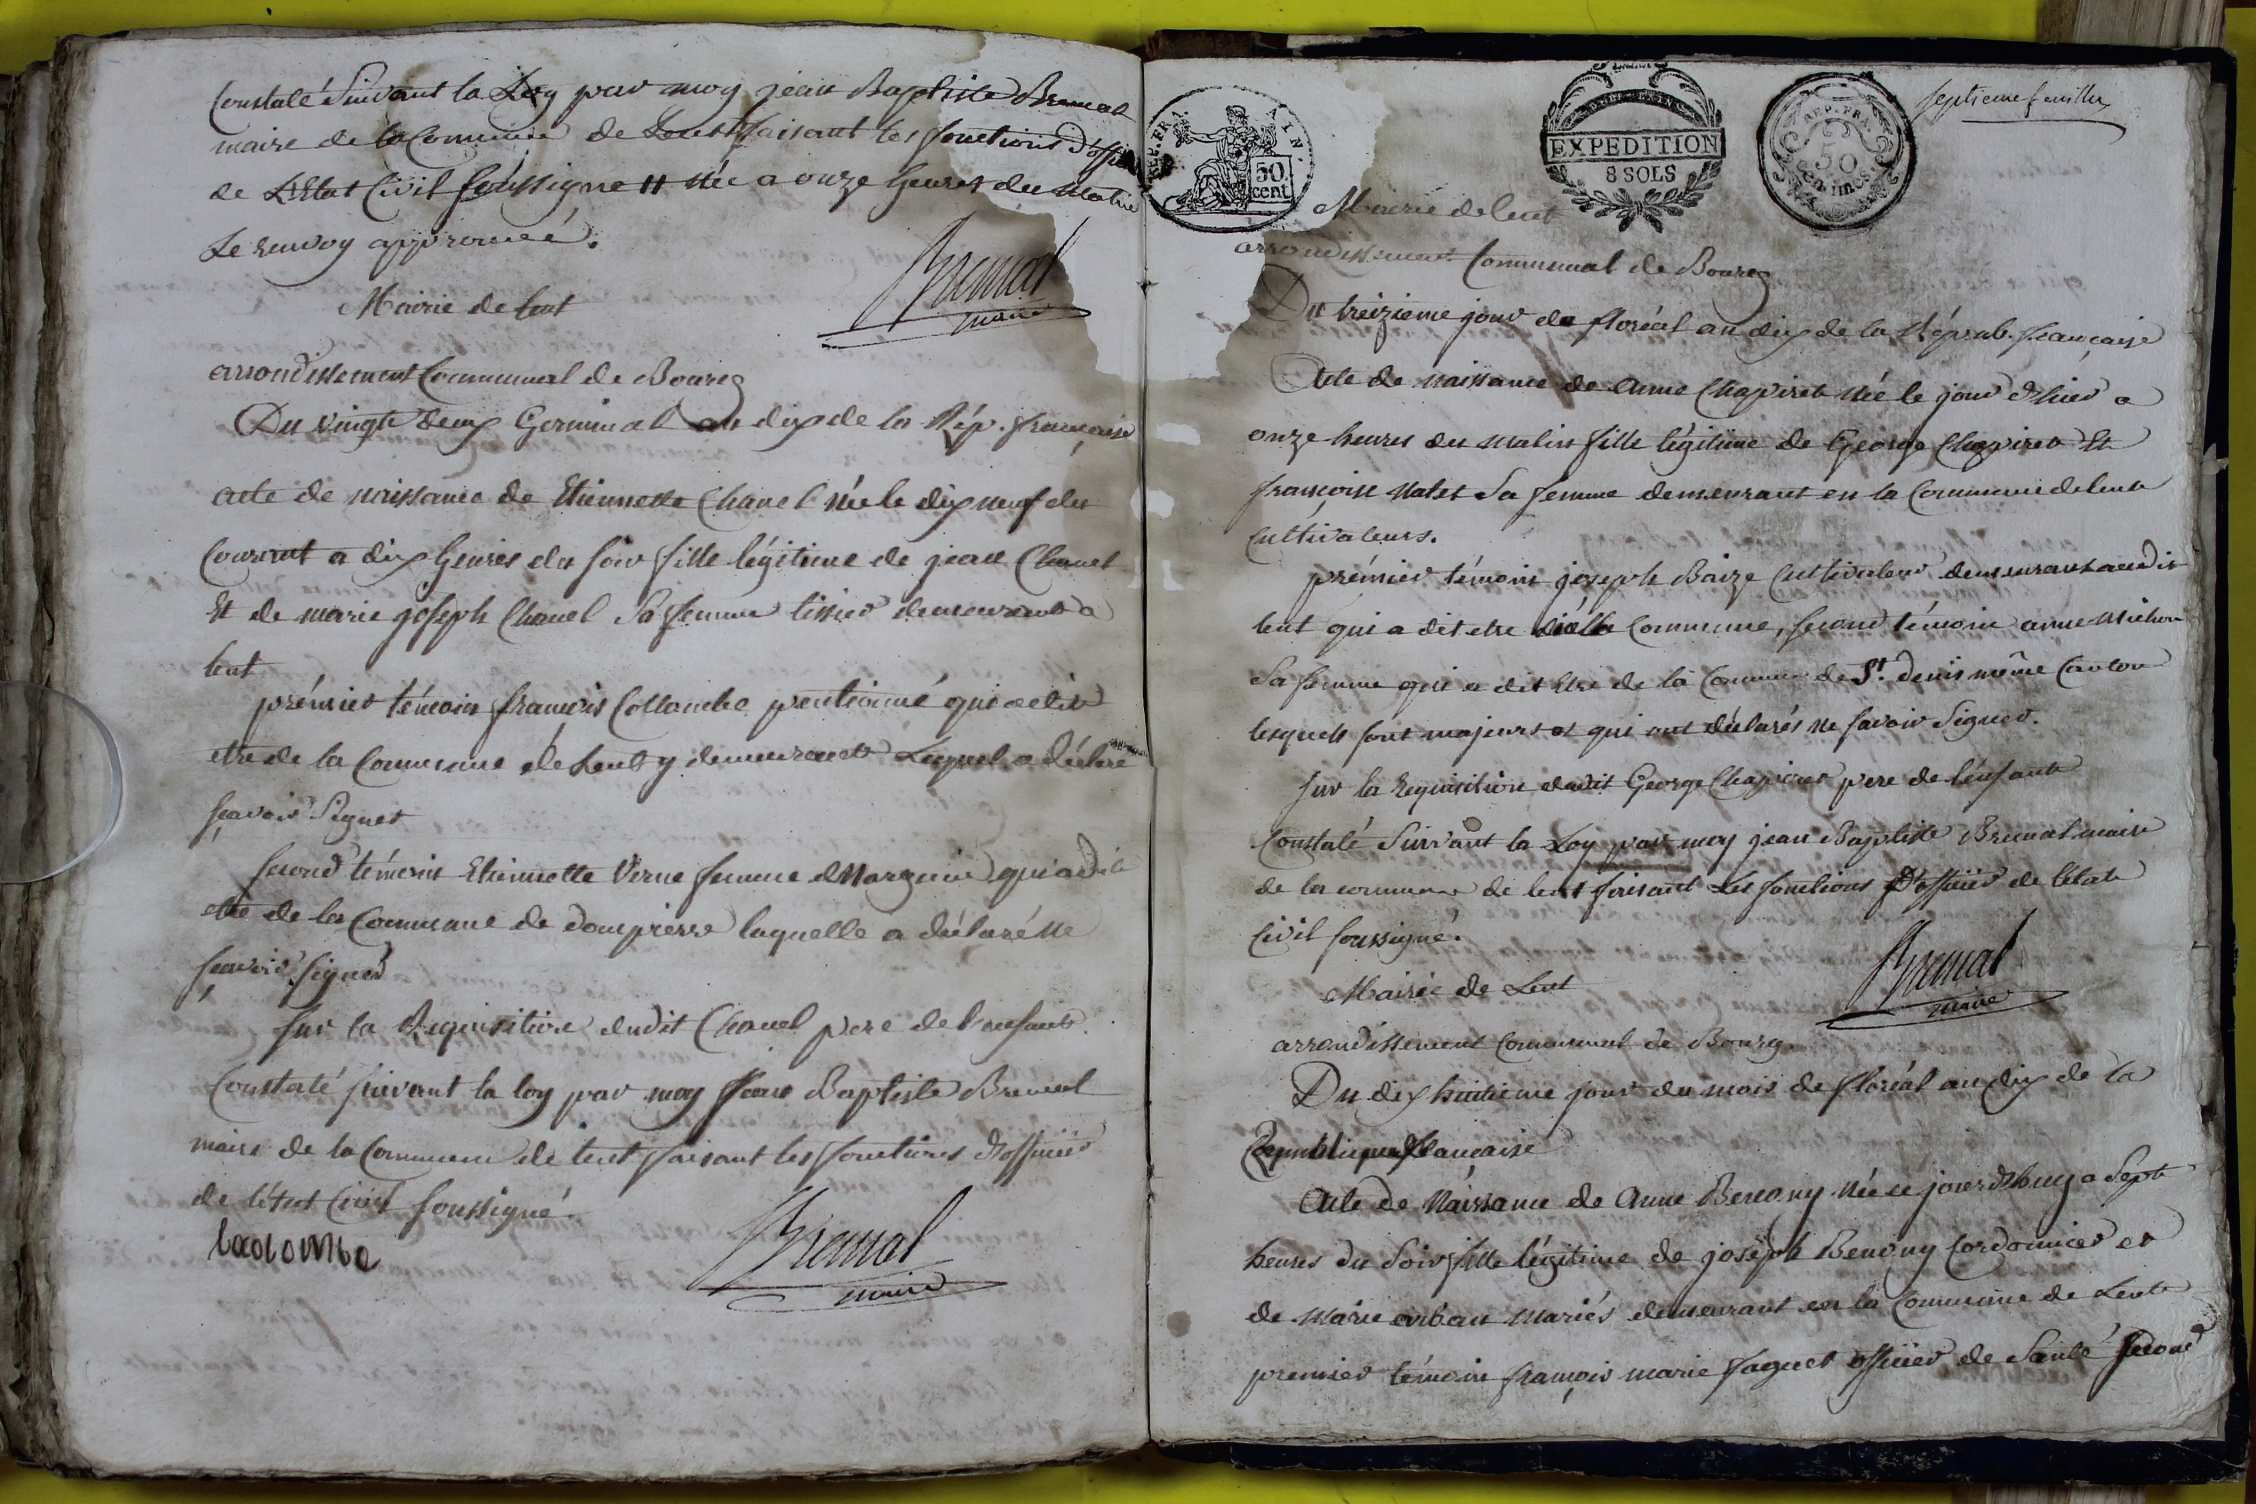 Constaté Suivant la Loy par moy jean Baptiste Bremal
maire de la Commune de Lent faisant les fonctions d'offi
de L'Etat Civil soussigné # Née a onze heures du Matin
Le renvoy approuvé.
Bremal
maire
Mairie de lent
arrondissement Communal de Bourg
Du vingt deux Germinal an dix de la Rép. française
acte de naissance de Etiennette Chanel née le dix neuf du
Courant a dix heures du soir fille légitime de jean Chanel
Et de marie joseph Chanel Sa femme tissier demeurant a
lent
prémier témoin françois Collombe pentionné qui a dit
etre de la Commune de Lent y demeurant Lequel a déclaré
sçavoir Signer
second témoin Etiennette Verne femme qui a dit
etre de la Commune de dompierre laquelle a déclaré ne
sçavoir signer
sur la Requisition dudit Chanel pere de l'enfant
Constaté suivant la loy par moy jean Baptiste Bremal
maire de la Commune de lent faisant les fonctions d'officier
de l'état Civil soussigné.
Bremal
maire
septieme feuillet
REP. FRA.
50 cent
EXPEDITION
8 SOLS
REP. FRA.
50
centimes
Mairie de lent
arrondissement Communal de Bourg
Du treizieme jour de floréal an dix de la Répub. française
Acte de naissance de anne Chapiret née le jour d'hier a
onze heures du matin fille légitime de George Chapiret Et
françoise Sa femme demeurant en la Commune de lent
Cultivateurs.
prémier témoin joseph Baize Cultivateur demeurant audit
lent qui a dit etre de la Commune, second témoin anne Michon
Sa femme qui a dit Etre de la Commune de St. denis même Canton
lesquels sont majeurs et qui ont déclarés ne savoir Signer.
sur la requisition dudit George Chapiret pere de l'enfant
Constaté Suivant la Loy par moy jean Baptiste Bremal maire
de la commune de lent faisant Les fonctions d'officier de l'etat
Civil soussigné.
Bremal
maire
Mairie de Lent
arrondissement Communal de Bourg.
Du dix huitieme jour du mois de floréal an dix de la
République française
Acte de Naissance de Anne Benony née ce jourd'huy a Sept
heures du Soir fille légitime de joseph Benony Cordonnier et
de marie mariés demeurant en la Commune de Lent
premier témoin françois marie faguet officier de Santé second